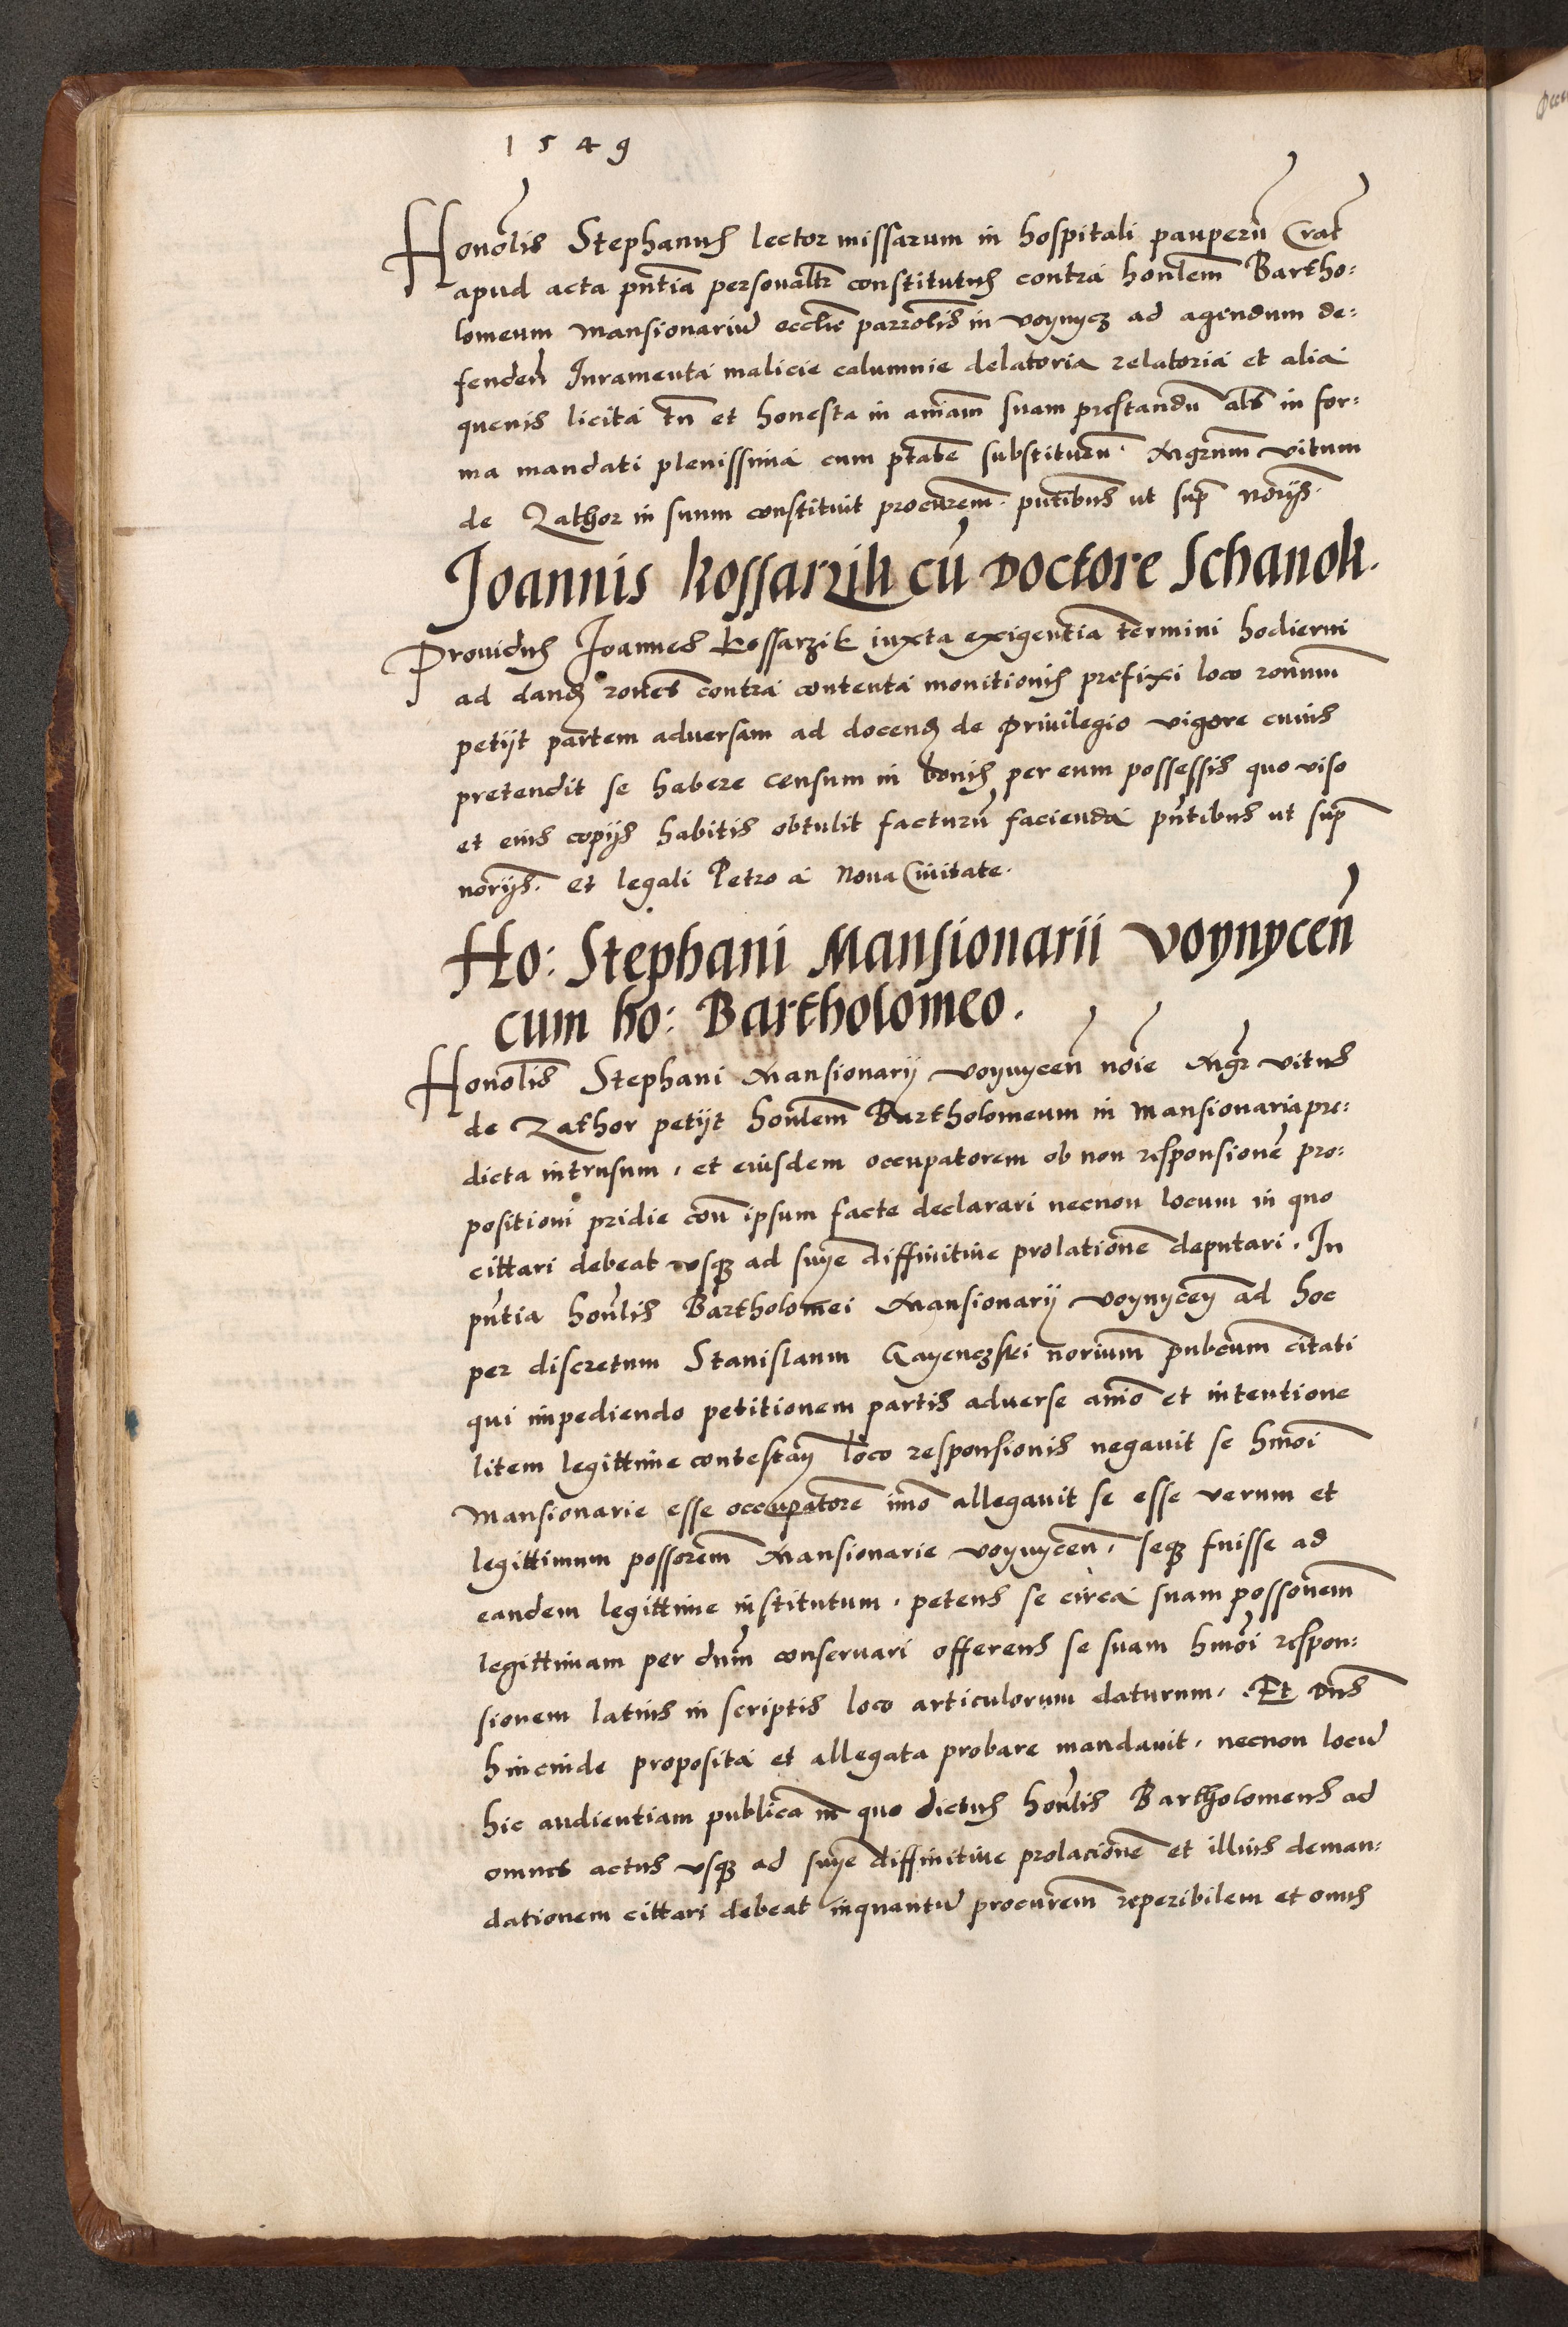 1549
Honorlis Stephanus lector missarum in hospitali pauperũ Crac̃
apud acta pñtia personaltr constitutus contra honlem̃ Bartho:
lomeum Mansionariũ eccłie parrolis̃ in voynycz ad agendum de:
fendeñ Iuramenta malicie calumnie delatoria relatoria et alia
quevis licita tñ et honesta in aniam̃ suam prestandũ als̃ in for:
ma mandati plenissima cum ptate substituẽn. Mgrum̃ vitum
de Zathor in suum constituit procurem̃. pñtibus ut sup̃ norijs̃.
Joannis Kossarzik cũ Doctore Schanok.
Prouidus Joannes Kossarzik iuxta exigentia termini hodierni
ad dand ronẽs contra contenta monitionis prefixi loco ronum̃
petijt partem adversam ad docend de privilegio vigore cuius
pretendit se habere censum in bonis per eum possessis quo viso
et eius copijs habitis obtulit facturũ facienda pñtibus ut sup̃
norijs̃. et legali Petro a Nova Civitate.
Ho: Stephani Mansionarii voynyceñ
cum ho: Bartholomeo.
Honolis̃ Stephani Mansionarij voynyceñ noĩe Mgr̃ vitus
de Zathor petijt honlem̃ Bartholomeum in Mansionaria pre:
dicta intrusum, et eiusdem occupatorem ob non responsionẽ pro:
positioni pridie coñ ipsum facte declarari necnon locum in quo
cittari debeat vsq ad suye diffinitiue prolationẽ deputari. In
pñtia honrlis Bartholomei Mansionarij voynyceñ ad hoc
per discretum Stanislaum Gayenczski norium̃ pubcum̃ citati
qui impediendo petitionem partis adverse anĩo et intentione
litem legittime contestañ loco responsionis negauit se hmoĩ
Mansionarie esse occupatorẽ imõ allegauit se esse verum et
legittimum possorem̃ Mansionarie voynyceñ, seq fuisse ad
eandem legittime institutum, petens se circa suam possonem̃
legittimam per dnm̃ conseruari offerens se suam hmoĩ respon:
sionem latius in scriptis loco articulorum daturum. Et Dns̃
hincinde proposita et allegata probare mandauit, necnon locũ
hic audientiam publicã in quo dictus honrlis Bartholomeus ad
omnes actus vsq ad suye diffinitiue prolacionẽ et illius deman:
dationem cittari debeat inquantũ procurem̃ reperibilem et omis